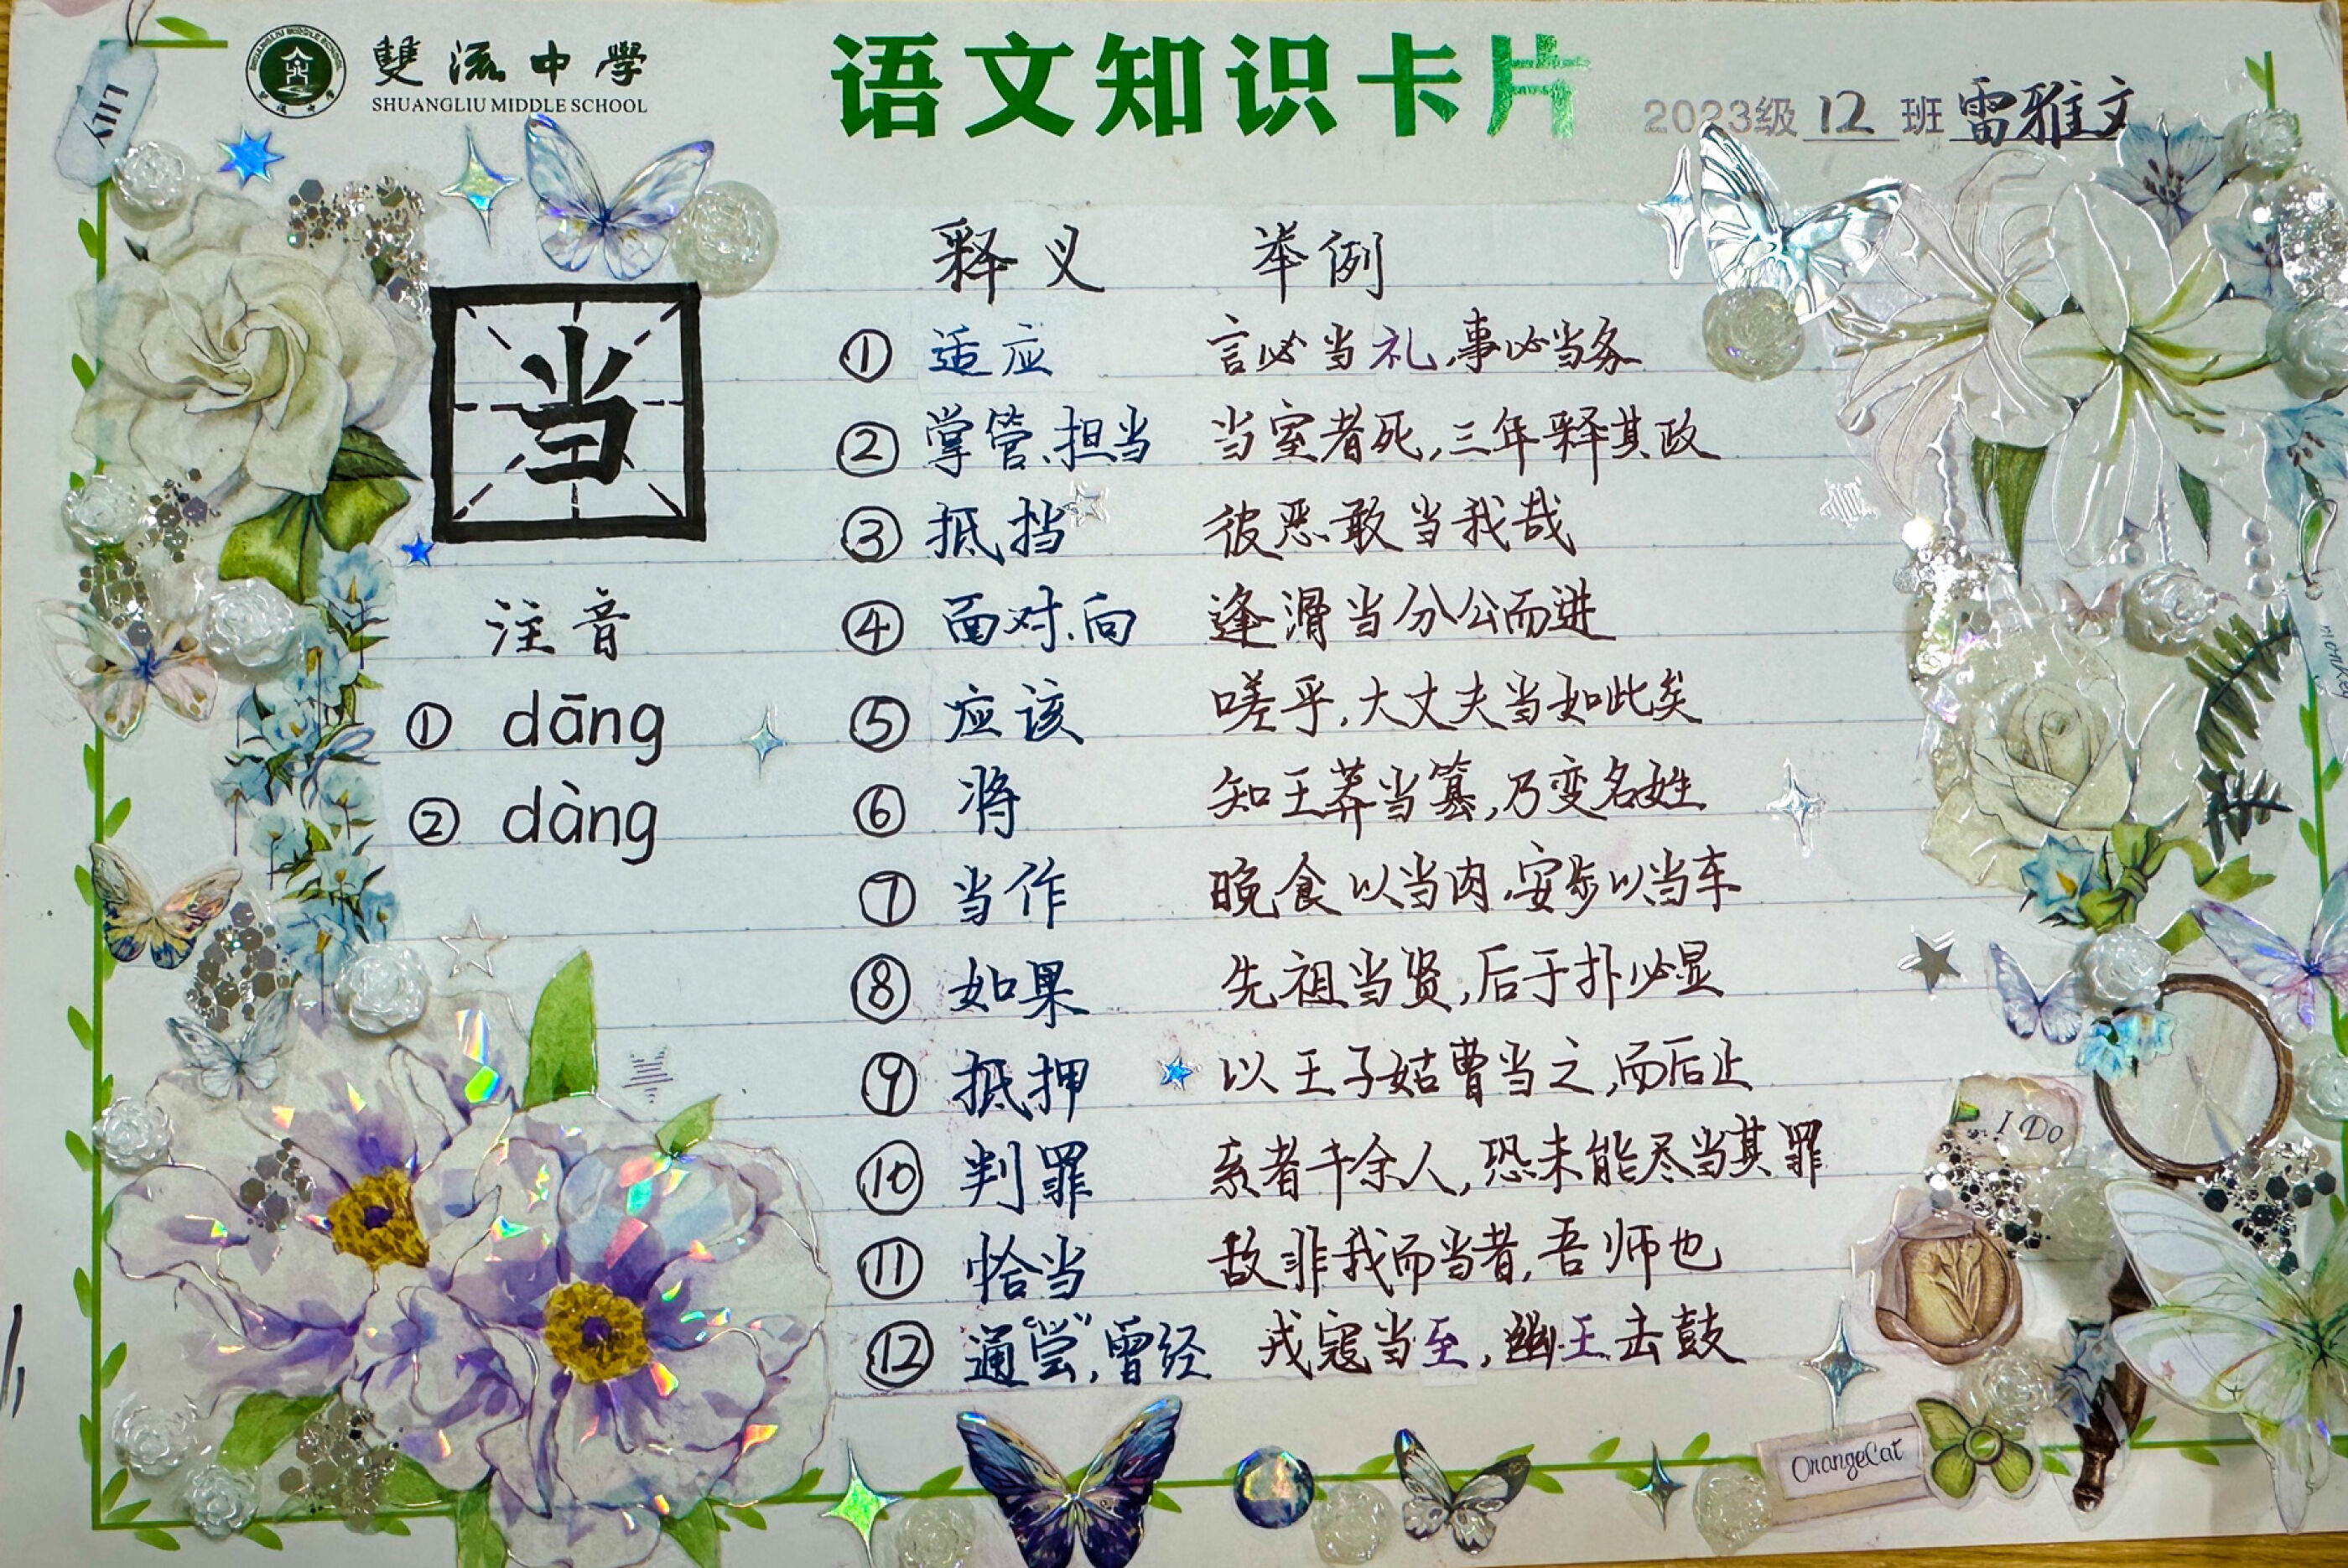 LILY
雙流中學
SHUANGLIU MIDDLE SCHOOL
语文知识卡片
2023级 12 班 雷雅文
当
注音
① dāng
② dàng
释义 举例
① 适应 言必当礼,事必当务
② 掌管、担当 当室者死,三年释其政
③ 抵挡 彼恶敢当我哉
④ 面对、向 逢滑当分公而进
⑤ 应该 嗟乎,大丈夫当如此矣
⑥ 将 知王莽当篡,乃变名姓
⑦ 当作 晚食以当肉,安步以当车
⑧ 如果 先祖当贤,后于扑必显
⑨ 抵押 以王子姑曹当之,而后止
⑩ 判罪 系者千余人,恐未能尽当其罪
⑪ 恰当 故非我而当者,吾师也
⑫ 通“尝”,曾经 戎寇当至,幽王击鼓
I Do
OrangeCat